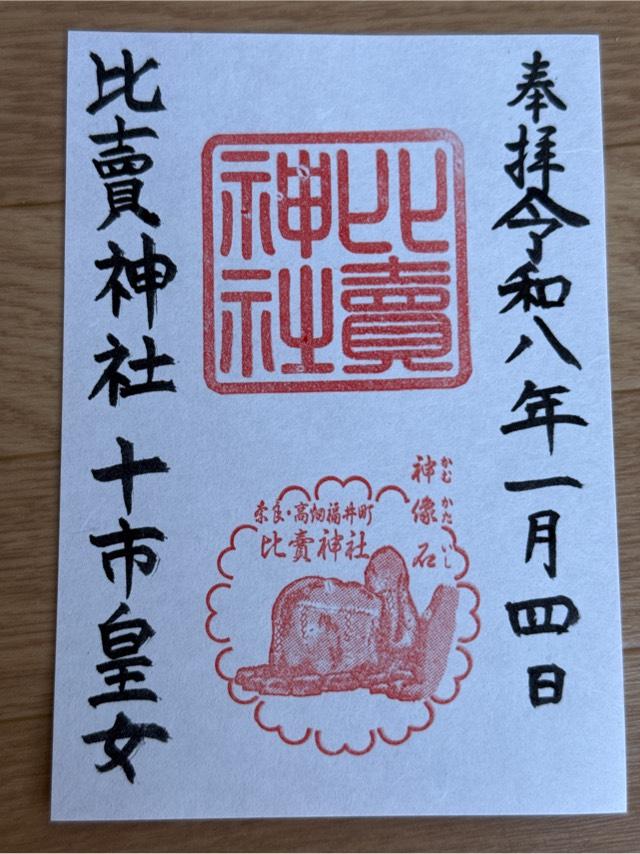 奉拝令和八年一月四日
比賣
神社
神像石
かむかたいし
奈良・高畑福井町
比賣神社
比賣神社 十市皇女